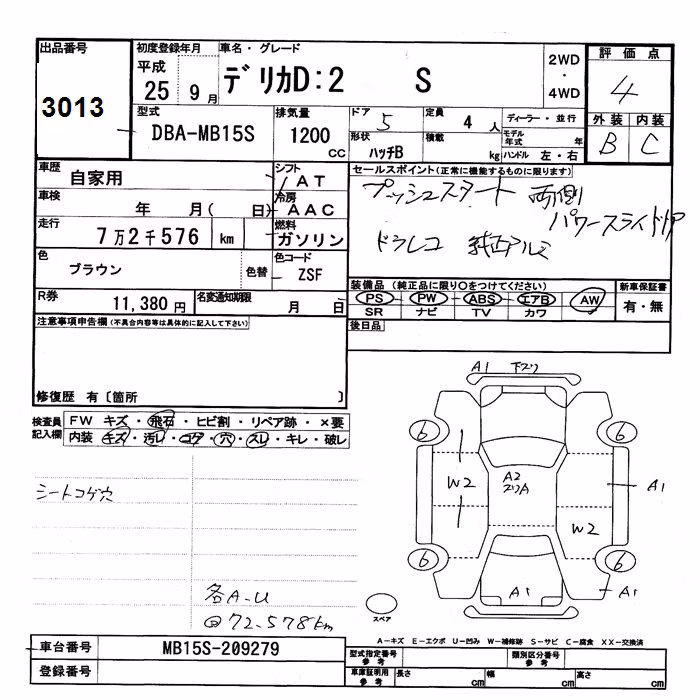 出品番号 初度登録年月 車名・グレード 評価点
3013 平成 25 9月 デリカD:2 S 2WD・4WD 4
型式 排気量 ドア 5 定員 4人 ディーラー・並行 外装 内装
DBA-MB15S 1200 CC 形状 ハッチB 積載 kg モデル年式 年 ハンドル 左・右 B C
車歴 自家用 シフト AT セールスポイント(正常に機能するものに限ります)
車検 年 月( 日) 冷房 AAC プッシュスタート 両側
パワースライドドア
走行 7万2千576 km 燃料 ガソリン ドラレコ 純正アルミ
色 ブラウン 色替 色コード ZSF
装備品 (純正品に限り○をつけてください) 新車保証書
PS PW ABS エアB AW 有・無
SR ナビ TV カワ
R券 11,380円 名変通知期限 月 日
後日品
注意事項申告欄(不具合内容等は具体的に記入して下さい)
修復歴 有〔箇所 〕
検査員記入欄 FW キズ・飛石・ヒビ割・リペア跡・×要
内装 キズ・汚レ・コゲ・穴・スレ・キレ・破レ
A1 下スリ
6 6
シートコゲ穴
W2 A2 A1
W2
6 6
A1 A1
各A-U
@72-578km
スペア
A-キズ E-エクボ U-凹み W-補修跡 S-サビ C-腐食 XX-交換済
車台番号 MB15S-209279 型式指定番号 参考 類別区分番号 参考
登録番号 車庫証明用 参考 長さ cm 幅 cm 高さ cm